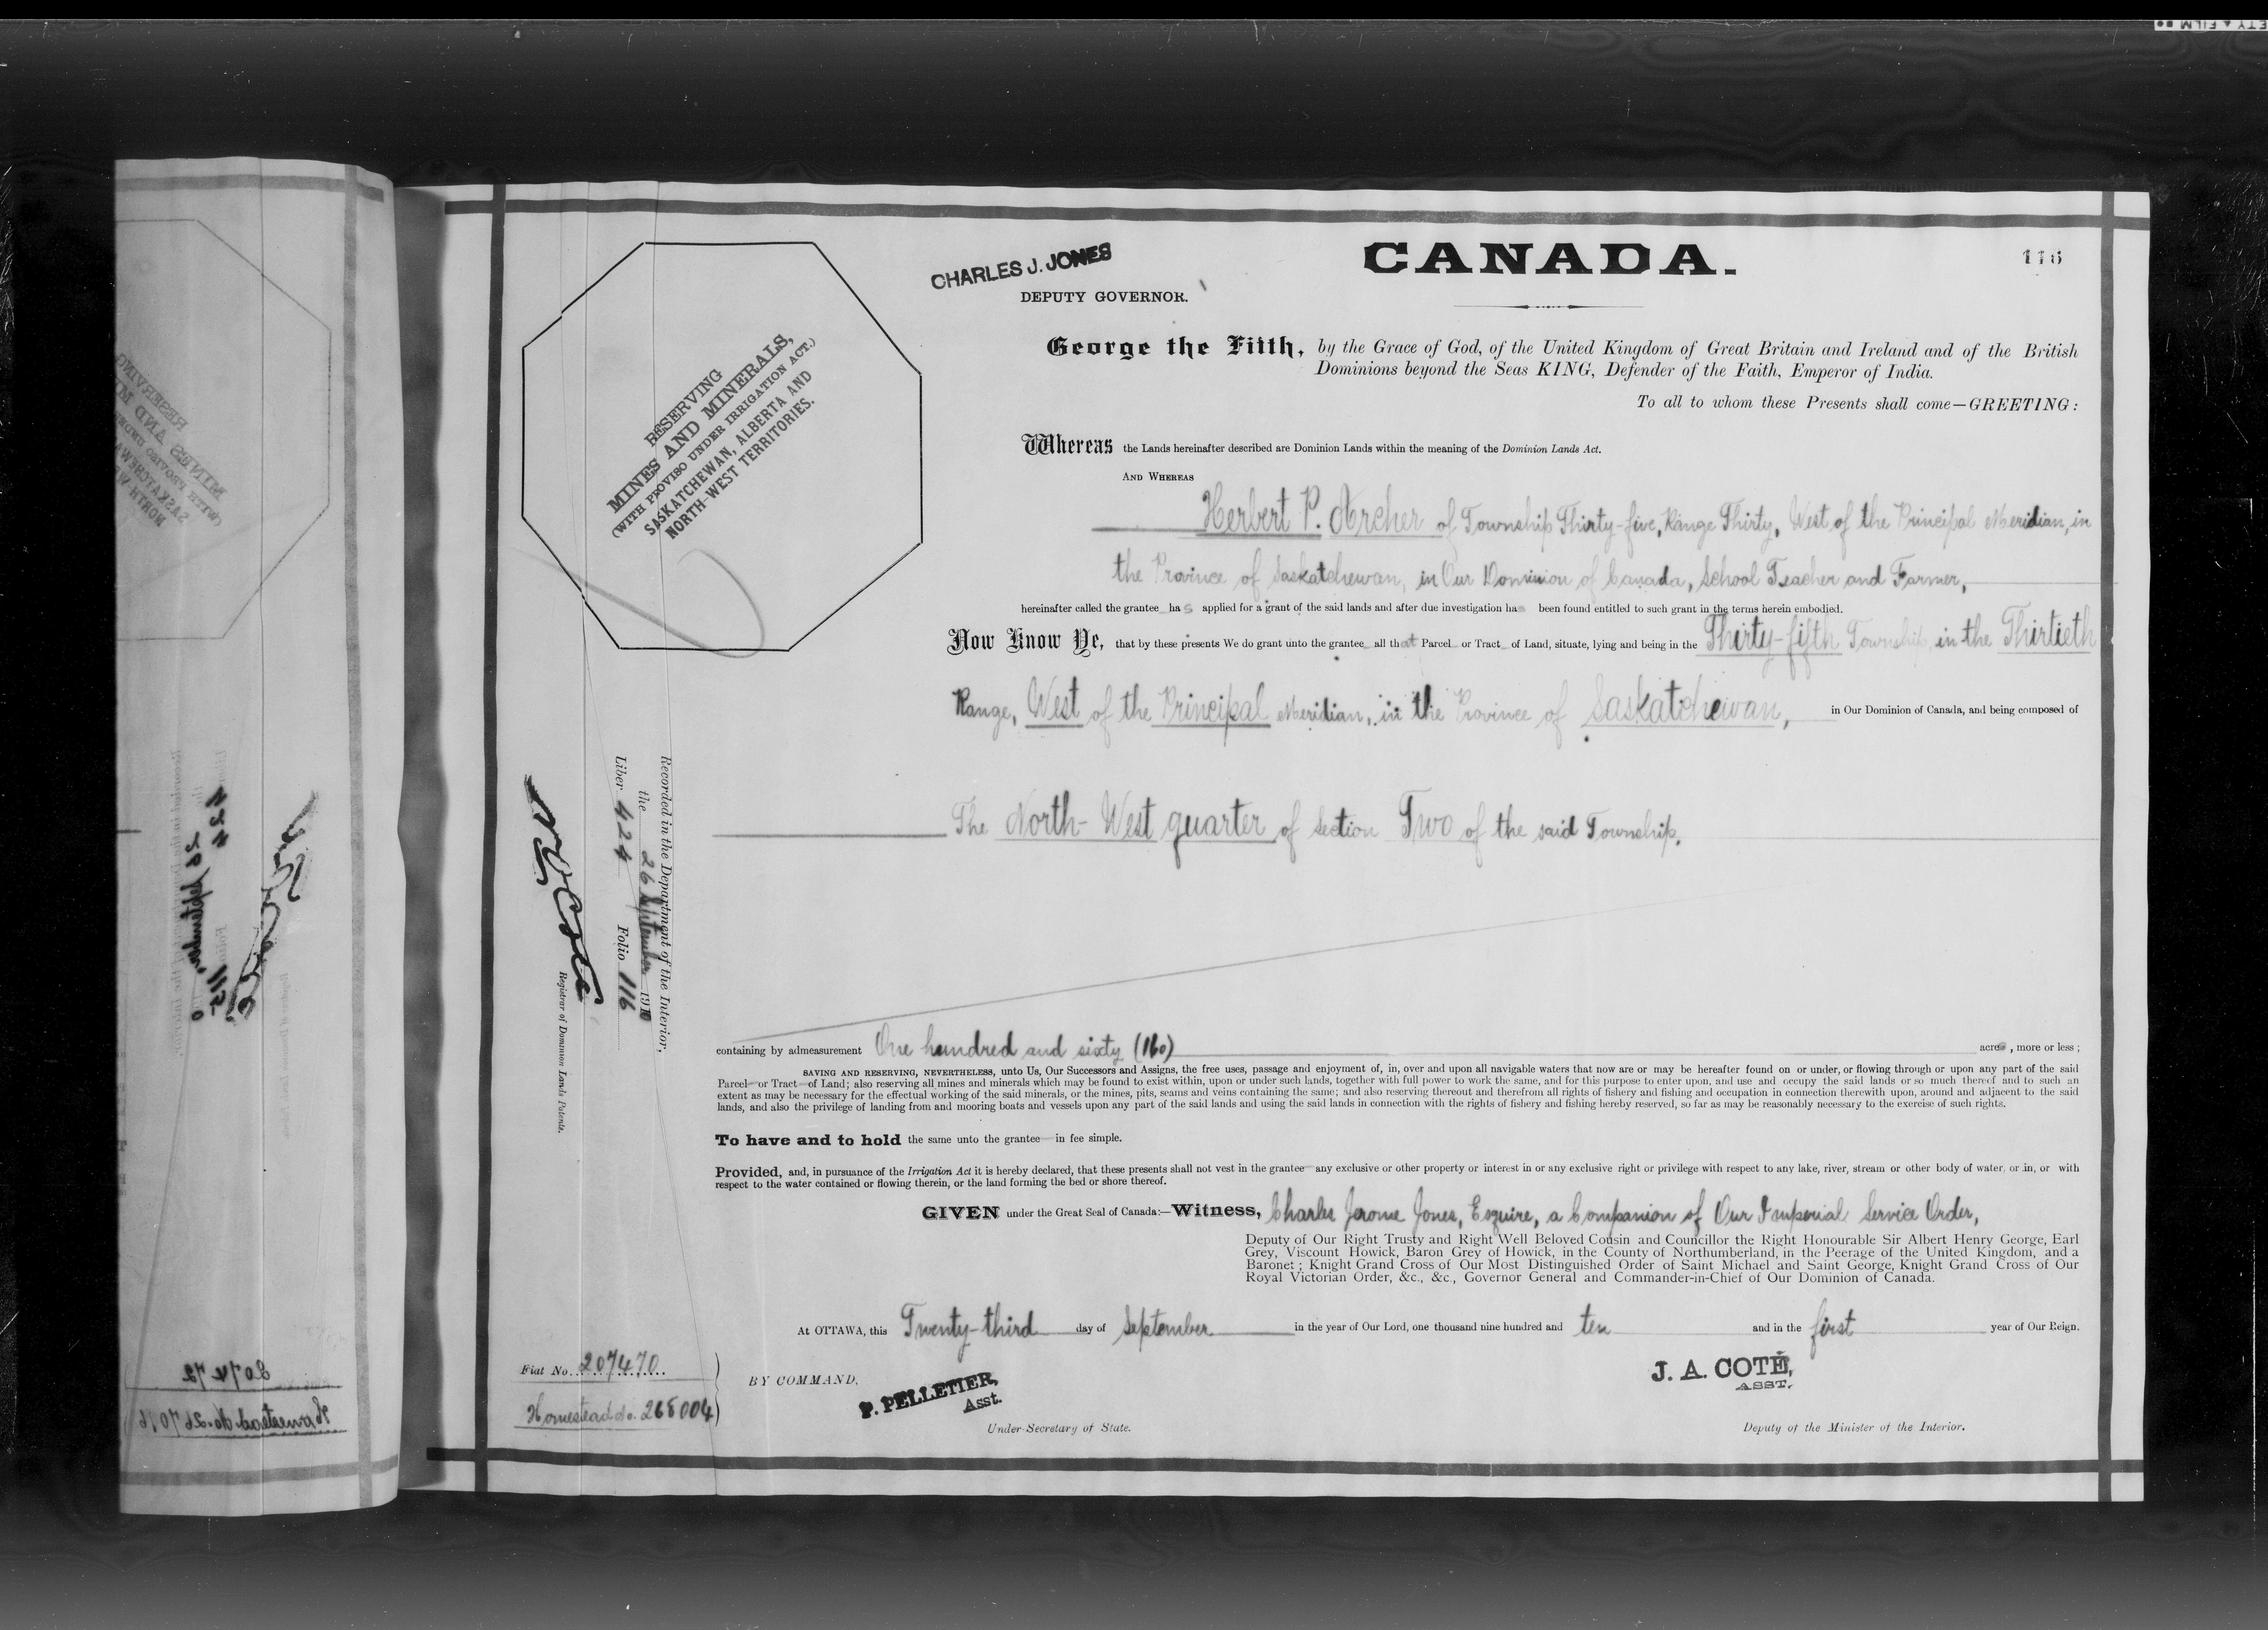 CHARLES J. JONES
DEPUTY GOVERNOR.
CANADA.
116
George the Fifth, by the Grace of God, of the United Kingdom of Great Britain and Ireland and of the British
Dominions beyond the Seas KING, Defender of the Faith, Emperor of India.
To all to whom these Presents shall come—GREETING:
RESERVING
MINES AND MINERALS,
(WITH PROVISO UNDER IRRIGATION ACT.)
SASKATCHEWAN, ALBERTA AND
NORTH-WEST TERRITORIES.
Whereas the Lands hereinafter described are Dominion Lands within the meaning of the Dominion Lands Act.
AND WHEREAS
Herbert P. Archer of Township Thirty-five, Range Thirty, West of the Principal Meridian, in
the Province of Saskatchewan, in Our Dominion of Canada, School Teacher and Farmer,
hereinafter called the grantee has applied for a grant of the said lands and after due investigation has been found entitled to such grant in the terms herein embodied.
Now Know Ye, that by these presents We do grant unto the grantee all that Parcel or Tract of Land, situate, lying and being in the Thirty-fifth Township, in the Thirtieth
Range, West of the Principal Meridian, in the Province of Saskatchewan, in Our Dominion of Canada, and being composed of
The North-West quarter of Section Two of the said Township.
Recorded in the Department of the Interior,
the 26 September 1910
Liber 424 Folio 116
Registrar of Dominion Lands Patents.
containing by admeasurement One hundred and sixty (160) acres, more or less;
SAVING AND RESERVING, NEVERTHELESS, unto Us, Our Successors and Assigns, the free uses, passage and enjoyment of, in, over and upon all navigable waters that now are or may be hereafter found on or under, or flowing through or upon any part of the said
Parcel or Tract of Land; also reserving all mines and minerals which may be found to exist within, upon or under such lands, together with full power to work the same, and for this purpose to enter upon, and use and occupy the said lands or so much thereof and to such an
extent as may be necessary for the effectual working of the said minerals, or the mines, pits, seams and veins containing the same; and also reserving thereout and therefrom all rights of fishery and fishing and occupation in connection therewith upon, around and adjacent to the said
lands, and also the privilege of landing from and mooring boats and vessels upon any part of the said lands and using the said lands in connection with the rights of fishery and fishing hereby reserved, so far as may be reasonably necessary to the exercise of such rights.
To have and to hold the same unto the grantee in fee simple.
Provided, and, in pursuance of the Irrigation Act it is hereby declared, that these presents shall not vest in the grantee any exclusive or other property or interest in or any exclusive right or privilege with respect to any lake, river, stream or other body of water, or in, or with
respect to the water contained or flowing therein, or the land forming the bed or shore thereof.
GIVEN under the Great Seal of Canada:—Witness, Charles Jerome Jones, Esquire, a Companion of Our Imperial Service Order,
Deputy of Our Right Trusty and Right Well Beloved Cousin and Councillor the Right Honourable Sir Albert Henry George, Earl
Grey, Viscount Howick, Baron Grey of Howick, in the County of Northumberland, in the Peerage of the United Kingdom, and a
Baronet; Knight Grand Cross of Our Most Distinguished Order of Saint Michael and Saint George, Knight Grand Cross of Our
Royal Victorian Order, &c., &c., Governor General and Commander-in-Chief of Our Dominion of Canada.
At OTTAWA, this Twenty-third day of September in the year of Our Lord, one thousand nine hundred and ten and in the first year of Our Reign.
Fiat No. 207470
Homestead No. 265004
BY COMMAND,
P. PELLETIER,
Asst.
Under-Secretary of State.
J. A. COTÉ,
ASST.
Deputy of the Minister of the Interior.